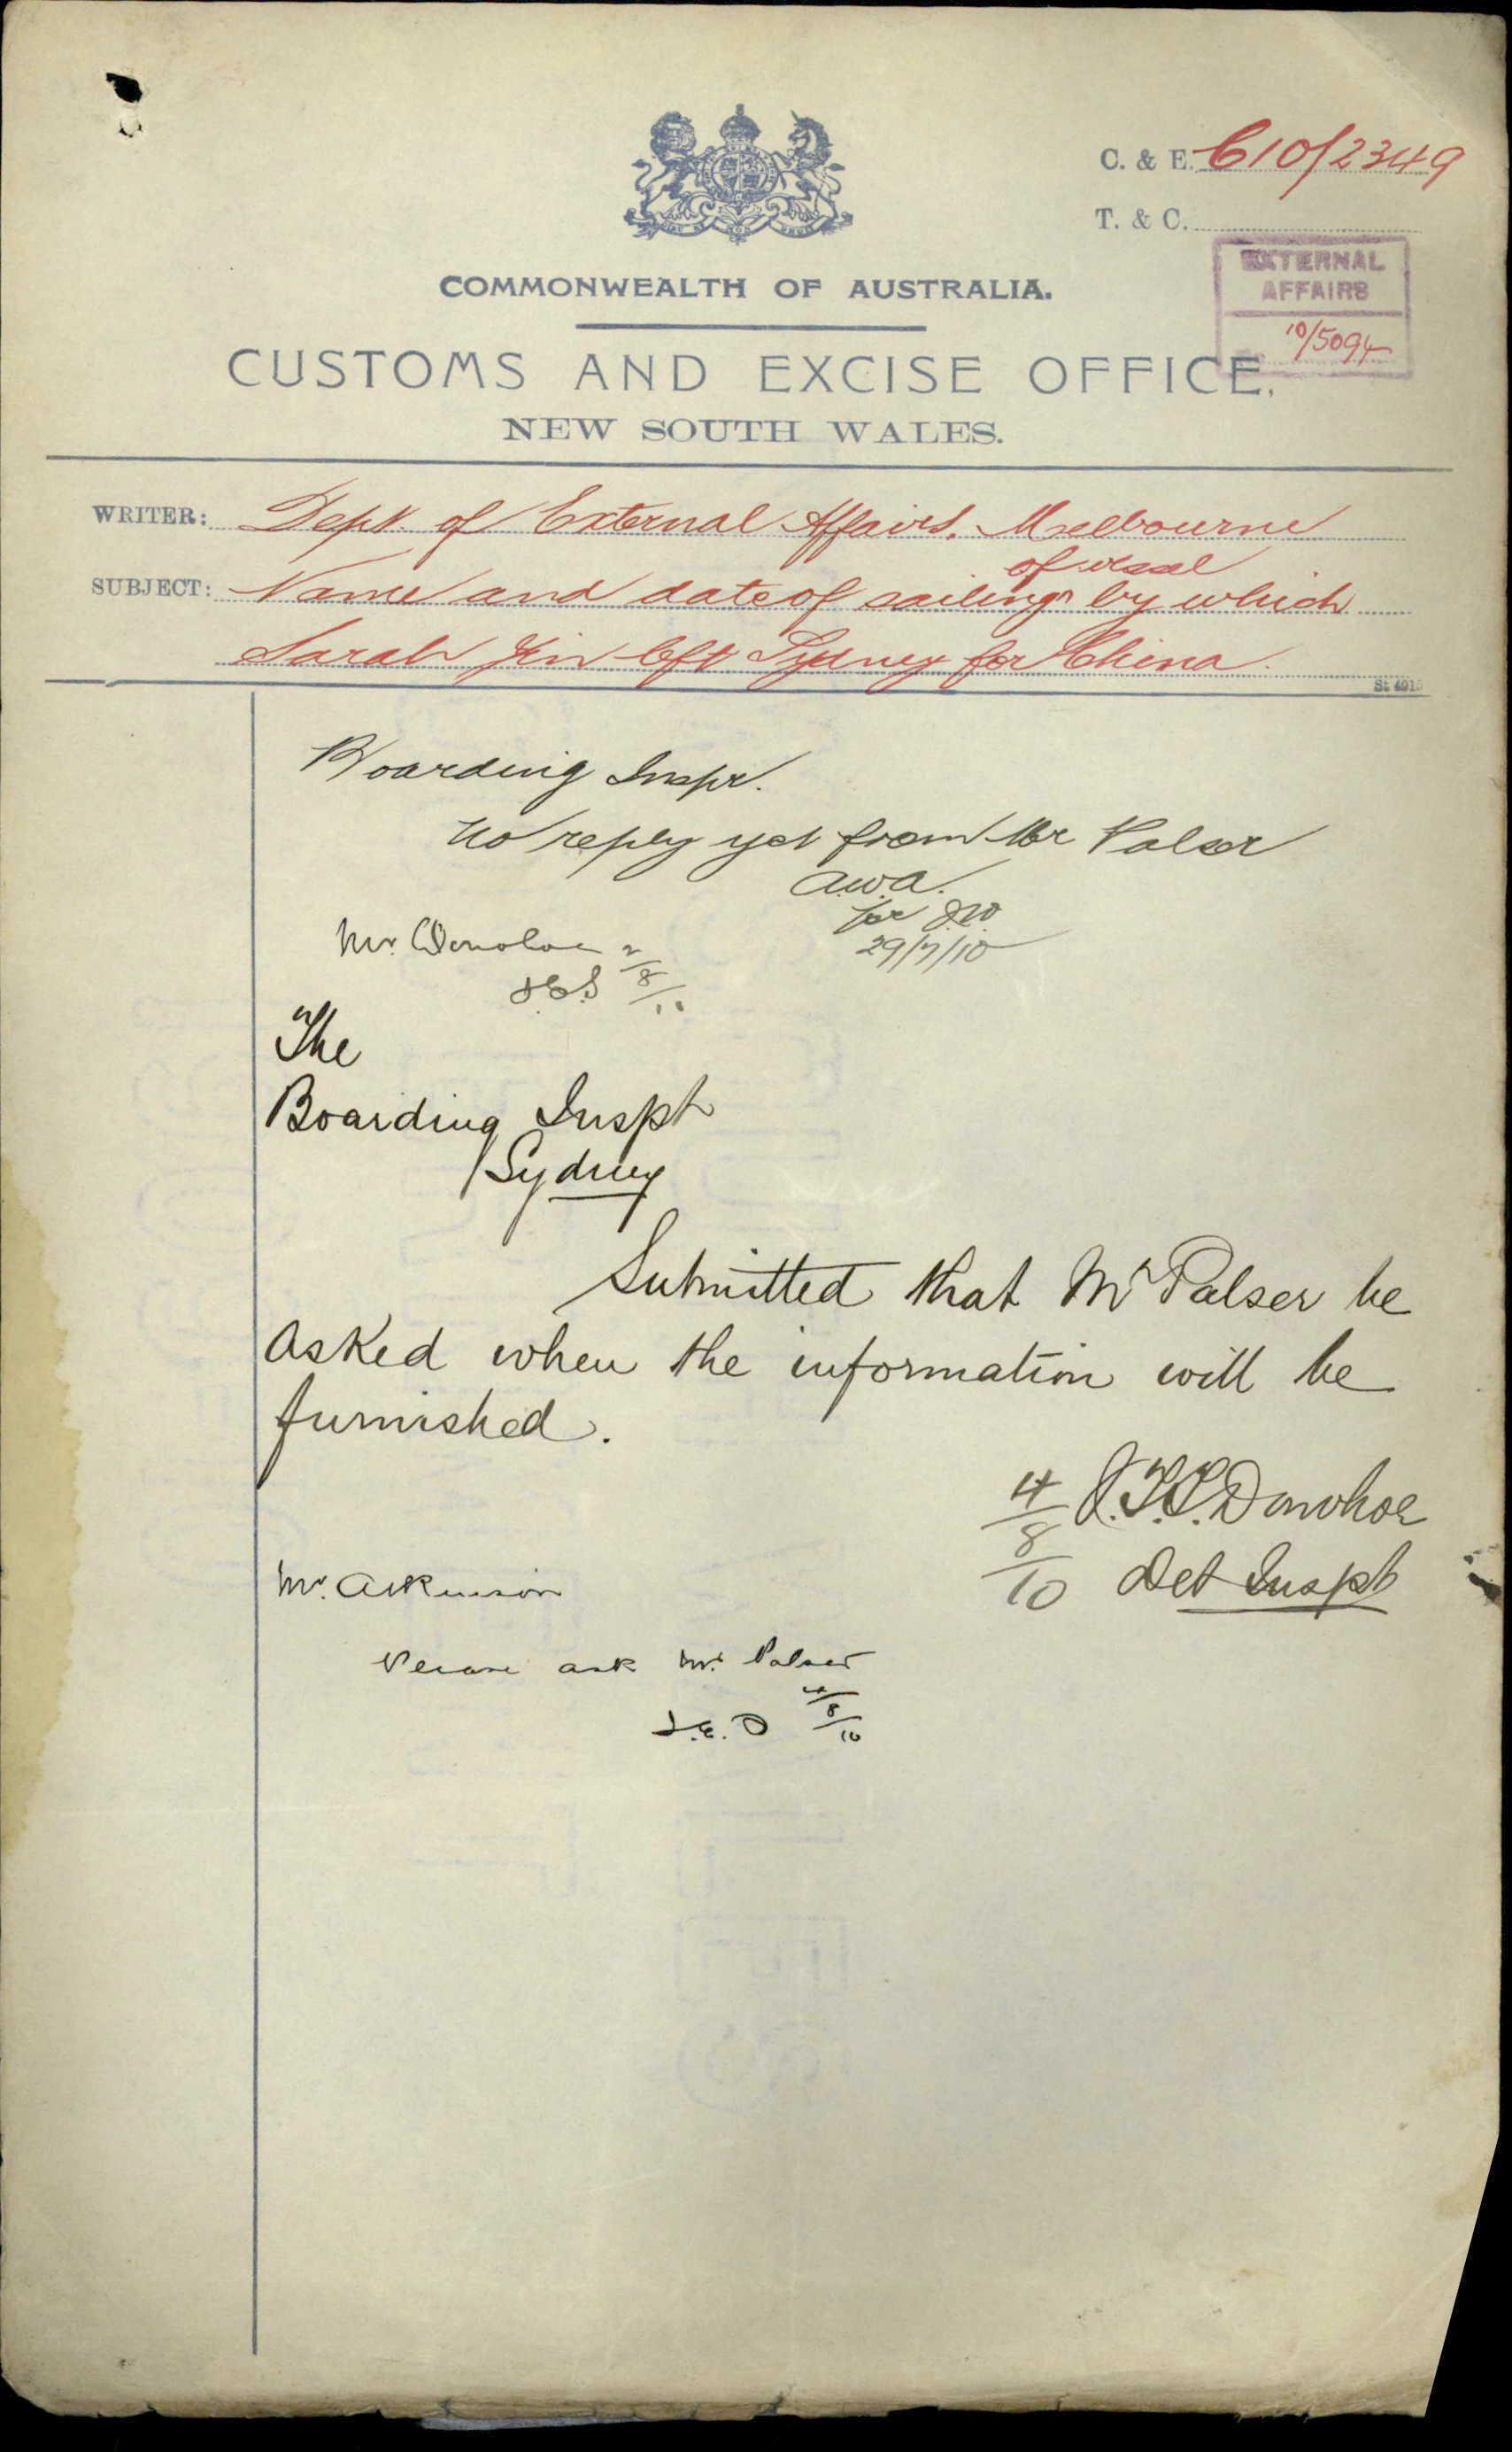 C. & E. C10/2349
T. & C.
EXTERNAL
AFFAIRS
10/5094
COMMONWEALTH OF AUSTRALIA.
CUSTOMS AND EXCISE OFFICE,
NEW SOUTH WALES.
WRITER: Dept. of External Affairs, Melbourne
of vessel
SUBJECT: Name and date of sailing ^ by which
Sarah Yin left Sydney for China.
St 491
Boarding Inspr.
No reply yet from Mr Palser
A.W.A.
for
29/7/10
Mr. Donohoe 2/8/10
The
Boarding Inspt
Sydney
Submitted that Mr Palser be
asked when the information will be
furnished.
4/8/10 J.T.T. Donohoe
Det Inspt
Mr. Atkinson
Please ask Mr. Palser
4/8/10